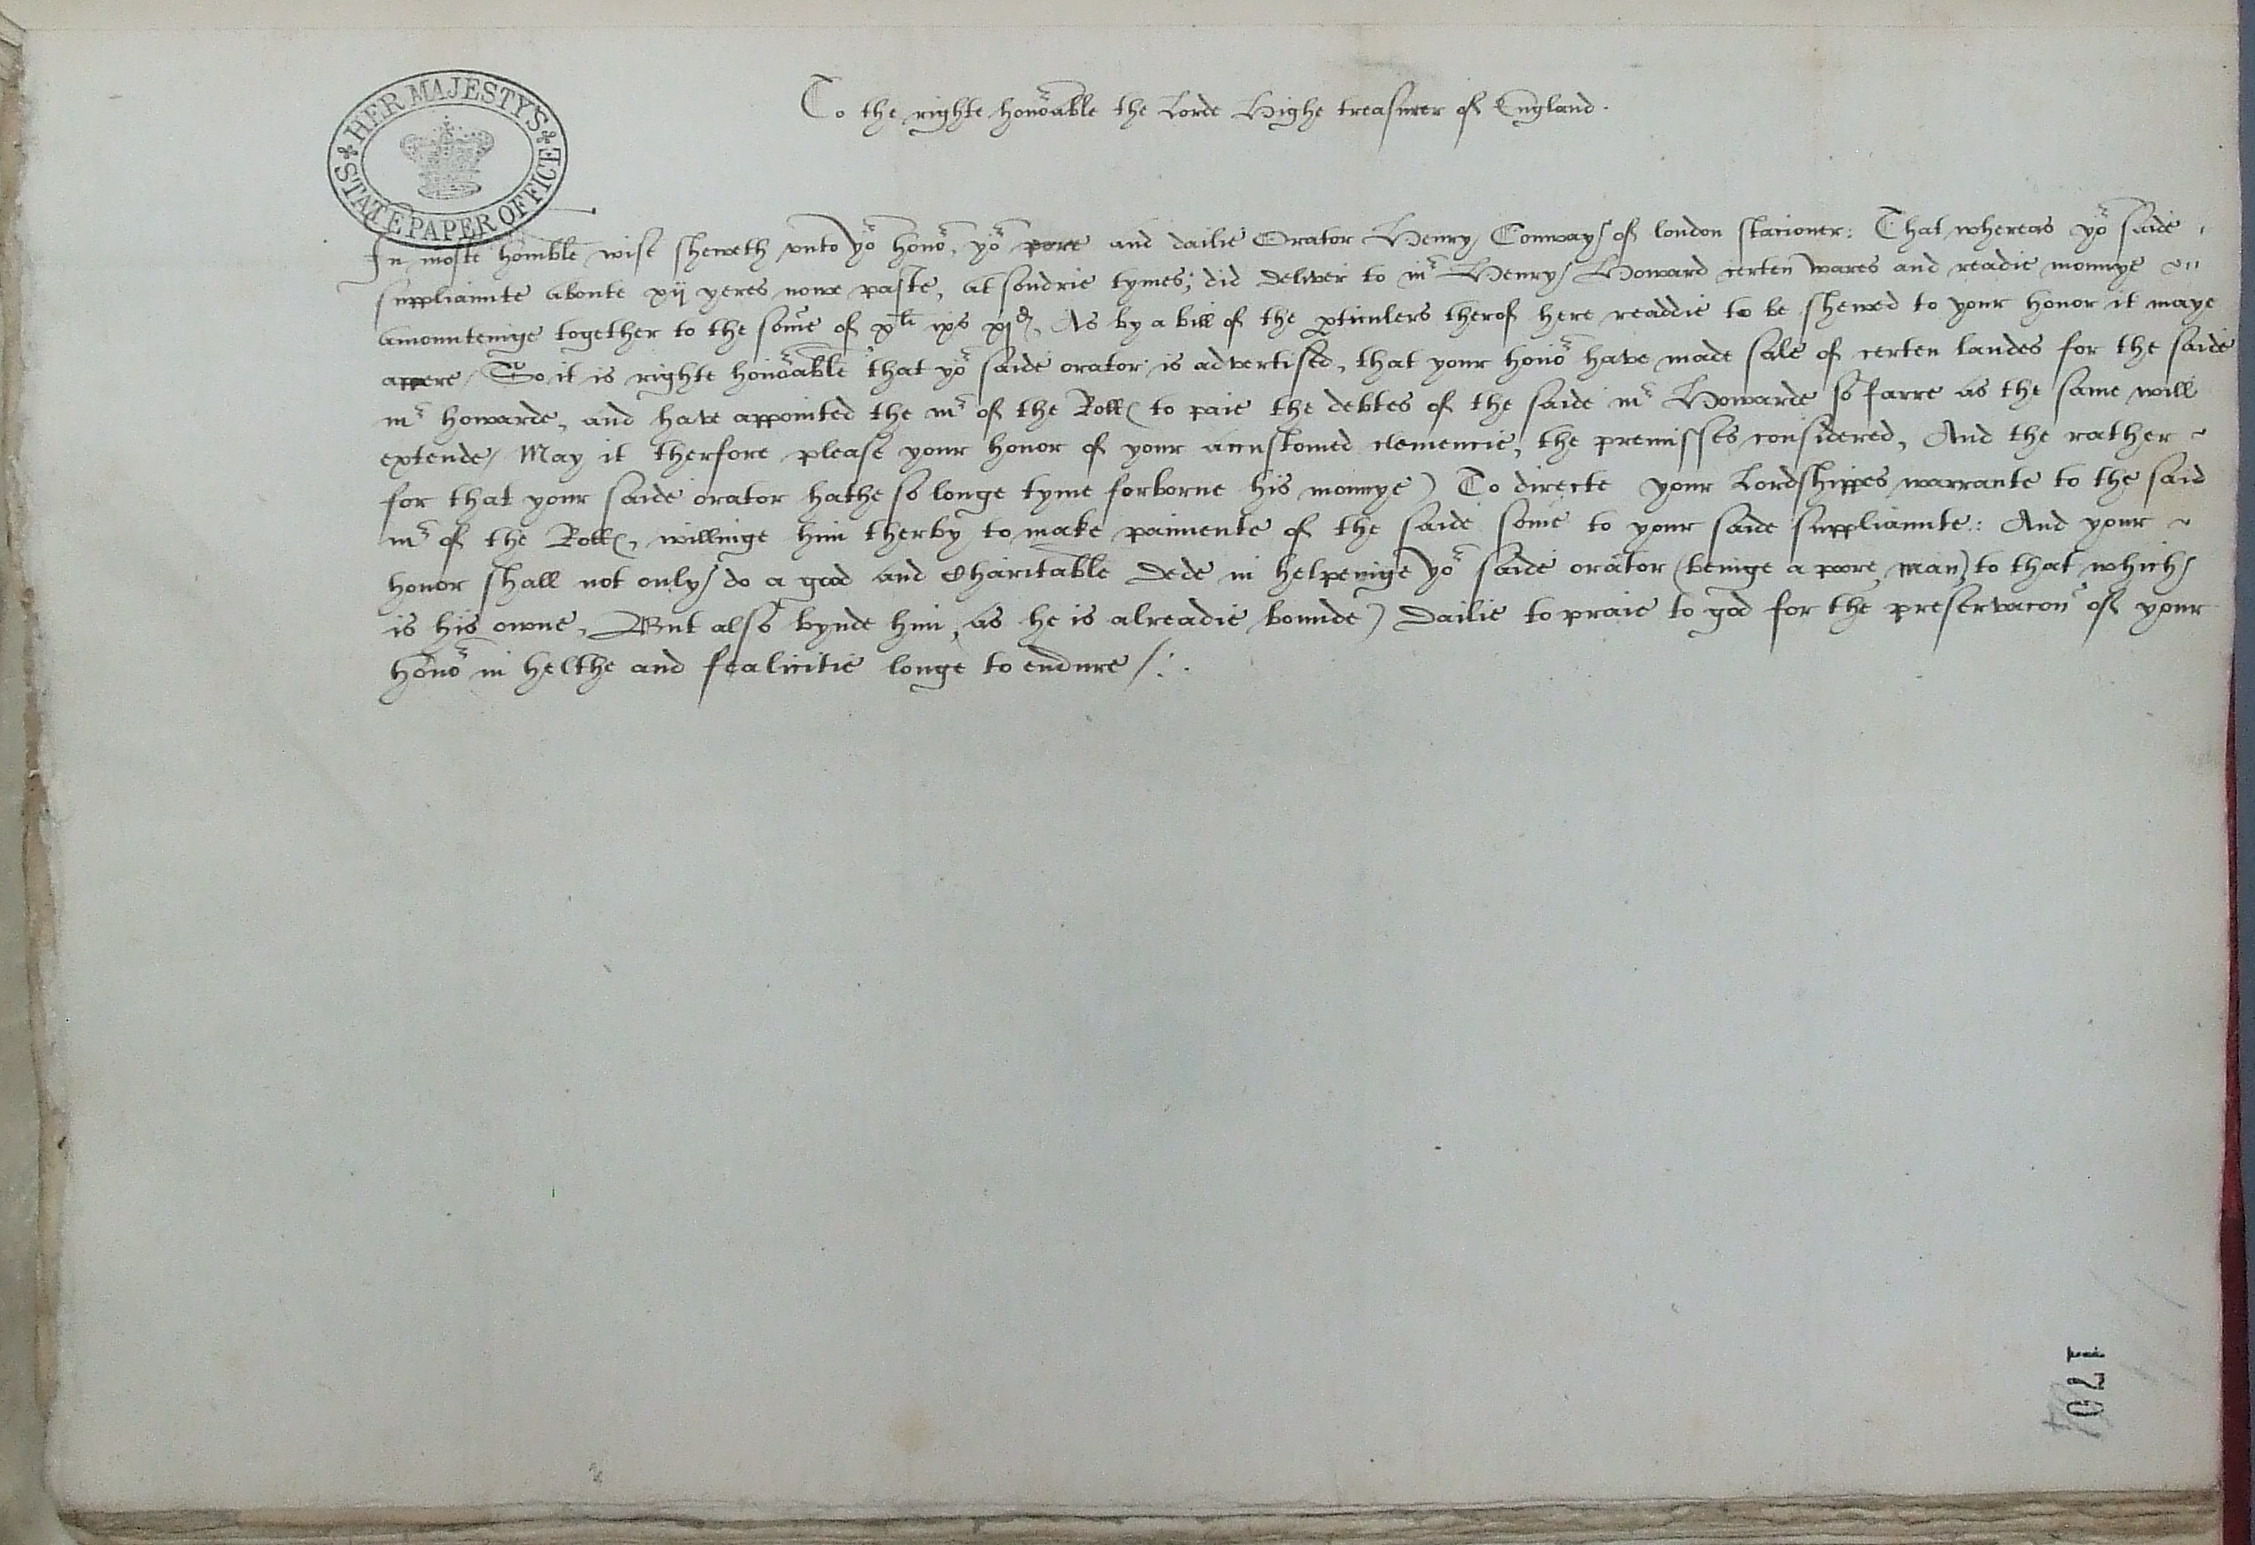 HER MAJESTY'S STATE PAPER OFFICE
To the righte honorable the Lorde Highe treasurer of England.
In moste homble wise sheweth vnto yor honor, yor pore and dailie Orator Henry Conway of london stacioner: That whereas yor saide
suppliaunte aboute xij yeres nowe paste, at sondrie tymes, did deliver to mr Henry Howard certen wares and readie monnye
amountenige together to the some of xli ixs xjd, As by a bill of the pticulers therof here readdie to be shewed to your honor it maye
appere / So it is righte honorable that yor saide orator is advertised, that your honor have made sale of certen landes for the saide
mr howarde, and have appointed the mr of the Rolles to paie the debtes of the saide mr Howarde so farre as the same will
extende / May it therfore please your honor of your accustomed clemencie, the premisses considered, And the rather ~
for that your saide orator hathe so longe tyme forborne his monnye) To directe your Lordshippes warrante to the said
mr of the Rolles, willinge him therby to make paimente of the saide some to your saide suppliaunte: And your ~
honor shall not only do a good and Charitable dede in helpenige yor saide orator (beinge a poore man) to that which
is his owne, But also bynde him, as he is alreadie bounde) dailie to praie to god for the preservacon of your
honor in helthe and fealicitie longe to endure /:.
170